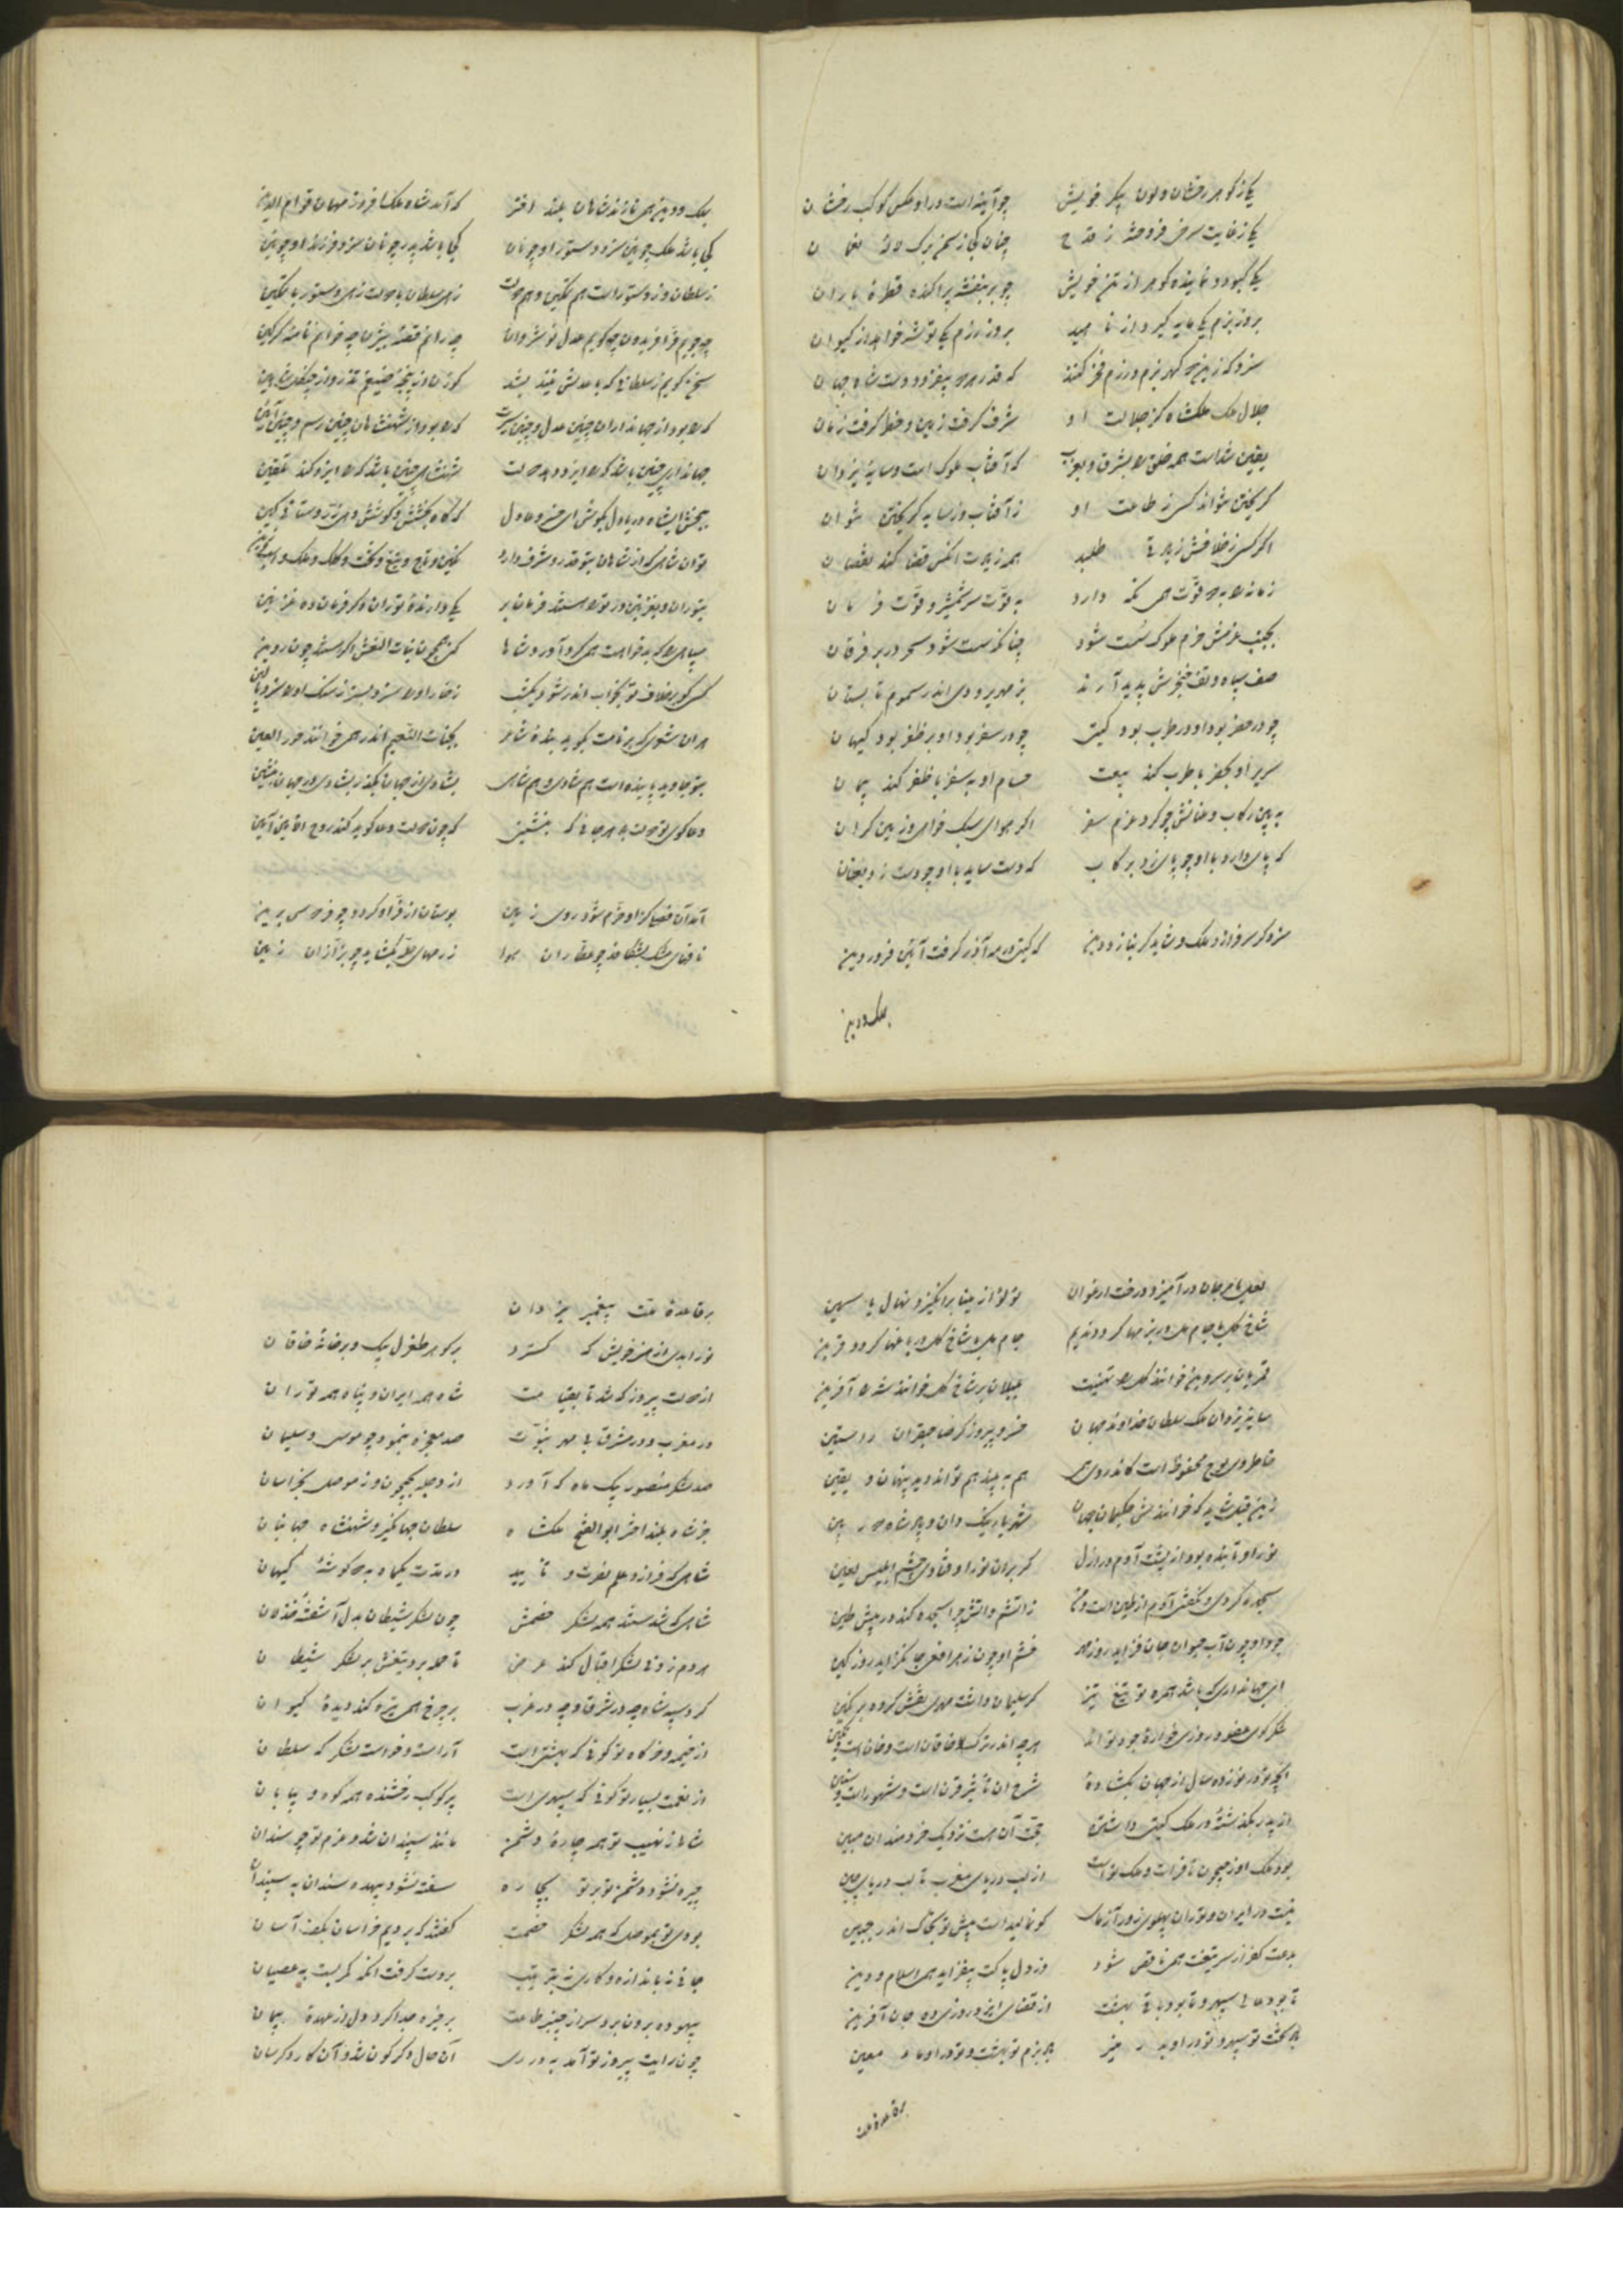 یکی ز گوهر رخشان و لون پیکر خویش چو آینه است در او عکس کوکب رخشان
یکی ز غایت سرخی فروخته ز قدح چنان کجا ز سمن برگ لاله نعمان
یکی کبود و نماینده گوهر از تن خویش چو بر بنفشه پراکنده قطره باران
بروز بزم یکی مایه گیرد از ناهید بروز رزم یکی توشه خواهد از کیوان
سزد که زین دو گهر بزم و رزم فخر کنند که قدر هر دو بیفزود دست شاه جهان
جلال ملک ملکشاه کز جلالت او شرف گرفت زمین و خطر گرفت زمان
یقین شد است همه خلق را بشرق و بغرب که آفتاب ملوک است و سایه یزدان
گریختن نتواند کس ز طاعت او ز آفتاب و ز سایه گریختن نتوان
اگر کسی ز خلافش زیادتی طلبد همه زیادت آنکس قضا کند نقصان
زمانه را به دو قوت همی نگه دارد به قوت سر شمشیر و قوت فرمان
بجنب عزمش حزم ملوک سست شود چنانکه سست شود سحر در بر فرقان
صف سپاه و تف خنجرش پدید آرند
چو در حضر بود او در طرب بود گیتی چو در سفر بود او بر ظفر بود کیهان
سریر او بحضر با طرب کند بیعت حسام او به سفر با ظفر کند پیمان
به بین رکاب و عنانش چو کرد عزم سفر اگر هوای سبک خواهی و زمین گران
که پای دارد با او چو پای زد برکاب که دست ساید با او چو دست زد بعنان
سزد گر سر فرازد ملک و شاید گر بنازد دین که گیتی در مه آذر گرفت آئین فروردین
بملک و دین
بملک و دین همی نازند شاهان بلند اختر که آمد شاه ملک افروز مهمان قوام الدین
کجا باشد ملک چونین سزد دستور او چونان کجا باشد پدر چونان سزد فرزند او چونین
ز سلطان و ز دستور است هم تمکین و هم دولت زهی سلطان با دولت زهی دستور با تمکین
چه جویم فر افریدون چه گویم عدل نوشروان چه رانم قصه بیژن چه خوانم نامه گرگین
سخن گویم ز سلطانی که با عدلش نیندیشد گوزن از پنجه ضیغم تذرو از چنگل شاهین
که را بود از جهانداران چنین عدل و چنین سیرت که را بود از شهنشاهان چنین رسم و چنین آئین
جهانداری چنین باشد که را ایزد دهد دولت شهنشاهی چنین باشد که را ایزد کند تلقین
ببخش ای شاه دریا دل بکوش ای خسرو عادل که گاه بخشش و کوشش
تو آن شاهی که از شاهان بتو قدر و شرف دارد نگین و تاج و تیغ و تخت و کلک و ملک و اسب و زین
بتوران و بغزنین در تو را هستند فرمان بر یکی دارنده توران دگر فرمان ده غزنین
سپاهی را که بدخواهت همی گرد آورد شاها کنی همچون بنات النعش اگر هستند چون پروین
کسی کو بر خلاف تو بخواب اندر شود یک شب ز خار او را سزد بستر ز سنگ او را سزد بالین
هر آن شعری که بر نامت بگوید بنده شاعر بجنات النعیم اندر همی خوانند حور العین
بتو جاوید پاینده است هم شادی و هم شاهی بشادی از جهان مگذر بشادی در جهان بنشین
دعا گوی تو دولت به هر جائی که بنشینی که چون دولت دعا گوید کند روح الامین آمین
آمد آن فصلی کزو خرم شود روی زمین بوستان از فر او گردد چو فردوس برین
نافهای مشک بشکافد چو عطاران هوا زر صهای حله بگشاید چو بزازان زمین
لعل با مرجان در آمیزد درخت ارغوان لؤلؤ از مینا برانگیزد نهال یاسمین
شاخ گل با جام مل در بزمها گردد ندیم جام مل با شاخ گل در باغها گردد قرین
قمریان بر سر و بن خوانند گل را تهنیت بلبلان بر شاخ گل خوانند شه را آفرین
سایه یزدان ملک سلطان خداوند جهان خسرو پیروزگر صاحبقران راستین
خاطر وی لوح محفوظ است کاندر وی همی هم به بیند هم تواند دید پنهان و یقین
زین قبل شاید که خوانندش حکیمان جهان شهریار نیک دان و پادشاه دور بین
نور او تابنده بود از پشت آدم در ازل گر بر آن نور اوفتادی چشم ابلیس لعین
سجده کردی و نگفتی آدم از طین است و من ز آتشم و آتش چرا سجده کند در پیش طین
جود او چون آب حیوان جان فزاید روز مهر خشم او چون زهر افعی جان گزاید روز کین
ای جهانداری که باشد همره تو تیغ تیز گر سلیمان داشت مهری نقش کرده بر نگین
شرح آن تأثیر قرن است و شهور است و سنین
از پدر بگذشته در ملک گیتی داشتن حجت آن هست نزدیک خردمندان مبین
بود ملک او ز جیحون تا فرات و ملک تو است از لب دریای مغرب تا لب دریای چین
نیست در ایران و توران پهلوی زور آزمای کو نمالیده است پیش تو بخاک اندر جبین
بدعت کفر از سر تیغت همی ناقص شود وز دل پاکت بیفزاید همی اسلام و دین
تا بود عالی سپهر و تا بود باقی بهشت از قضای ایزد روزی ده جان آفرین
باد تخت تو سپهر و تو در او بدر منیر باد بزم تو بهشت و تو در او ماء معین
بر قاعده ملت
بر قاعده ملت پیغمبر یزدان
نور ابدی از هنر خویش که گسترد بر گوهر طغرل بیک و بر خانه خاقان
از دولت پیروز که شد تا بقیامت شاه همه ایران و پناه همه توران
در مغرب و در مشرق بی مهر نبوت صد معجزه بنمود چو موسی و سلیمان
صد لشکر منصور بیک ماه که آورد از دجله بجیحون و ز موصل بخراسان
جز شاه بلند اختر ابوالفتح ملکشاه سلطان جهانگیر و شهنشاه جهانبان
شاهی که فرازد علم نصرت و تأیید در مدت یکماه به دو گوشه کیهان
شاهی که شدستند همه لشکر خصمش چون لشکر شیطان بدل آشفته خذلان
هر دم زدنی لشکر اقبال کند عرض تا حمله برد تیغش بر لشکر شیطان
گرد سپه شاه چه در شرق و چه در غرب بر چرخ همی تیره کند دیده کیوان
از خیمه و خرگاه تو گوئی که بهشت است آراسته و خواسته لشکر گه سلطان
از نعمت بسیار تو گوئی که سپهری است پر کوکب رخشنده همه کوه و بیابان
شاها ز نهیب تو همه چاره دشمن مانند سپندان شد و عزم تو چو سندان
چیره نشود دشمن تو بر تو بچاره سفته نشود بیهده سندان به سپندان
بودی تو بموصل که همه لشکر خصمت گفتند که بردیم خراسان بکف آسان
جائی نه باندازه و کاری نه بترتیب بر دست گرفت آنکه کمر بست به عصیان
بیهوده برون برد سر از چنبر طاعت بر خیره جدا کرد دل از عهده پیمان
چون رایت پیروز تو آمد به در ری آن حال دگرگون شد و آن کار دگر سان